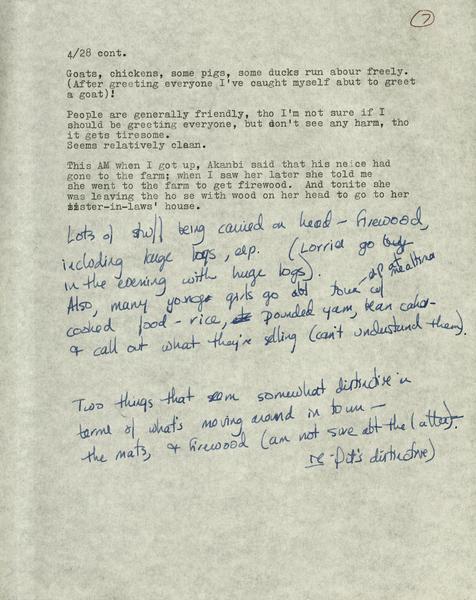 7
4/28 cont.
Goats, chickens, some pigs, some ducks run abour freely.
(After greeting everyone I've caught myself abut to greet
a goat)!
People are generally friendly, tho I'm not sure if I
should be greeting everyone, but don't see any harm, tho
it gets tiresome.
Seems relatively claan.
This AM when I got up, Akanbi said that his neice had
gone to the farm; when I saw her later she told me
she went to the farm to get firewood. And tonite she
was leaving the ho se with wood on her head to go to her
sister-in-laws' house.
Lots of stuff being carried on head - firewood,
including huge logs, esp. (Lorries go by
in the evening with huge logs).
Also, many young girls go abt town w/
cooked food - rice, pounded yam, bean cake -
& call out what they're selling (can't understand them).
Two things that seem somewhat distinctive in
terms of what's moving around in town -
the mats, & firewood (am not sure abt the latter).
re - distinctive)